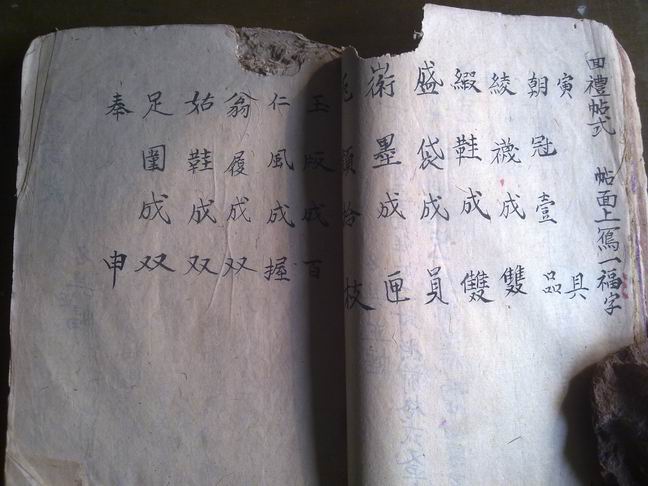 回禮帖式 帖面上寫一福字
寅具
朝冠壹品
綾襪成雙
緞鞋成雙
盛袋成員
墨成匣
毛穎拾枝
玉版成百
仁風成握
翁履成双
姑鞋成双
足圍成双
奉申